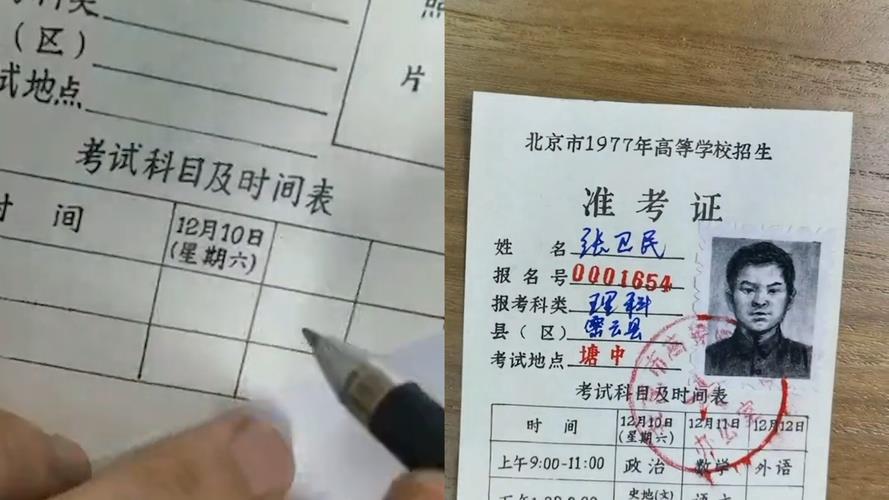 科类
（区）
试地点
照
片
考试科目及时间表
时 间
12月10日
(星期六)
北京市1977年高等学校招生
准考证
姓 名 张卫民
报 名 号 0001654
报考科类 理科
县（区） 密云县
考试地点 塘中
考试科目及时间表
时 间 12月10日 12月11日 12月12日
(星期六)
上午9:00-11:00 政治 数学 外语
史地(文)
办公室